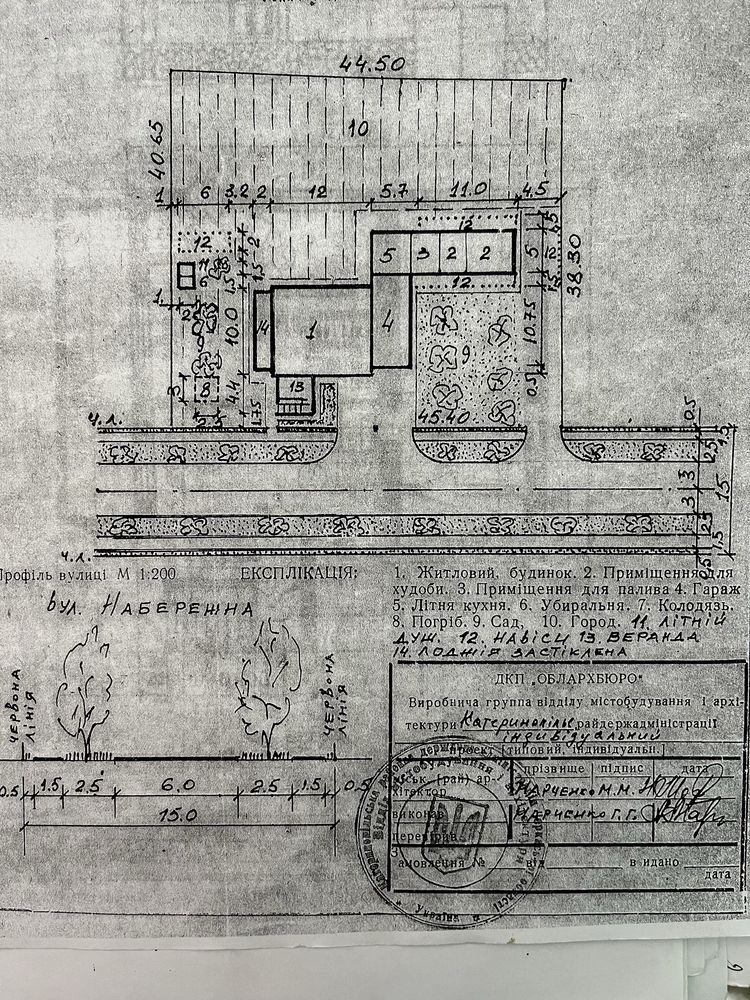 44.50
10
40.65
1 6 3.2 2 12 5.7 11.0 4.5
12
12
2
1.5
5 3 2 2
5
12
1.5
1.5
38.30
11
6
1.5
12
1.
14
1
4
10.0
9
9
10.75
13
3
8
4.4
1.75
0.5
45.40
ч.л.
0.5
2.5
1.5
3
15
3
2.5
1.5
0.5
ч.л.
Профіль вулиці М 1:200
вул. НАБЕРЕЖНА
ЕКСПЛІКАЦІЯ:
1. Житловий, будинок. 2. Приміщення для
худоби. 3. Приміщення для палива 4. Гараж
5. Літня кухня. 6. Убиральня. 7. Колодязь.
8. Погріб. 9. Сад, 10. Город. 11. ЛІТНІЙ
ДУШ. 12. НАВІСИ 13. ВЕРАНДА
14. ЛОДЖІЯ ЗАСТІКЛЕНА
ЧЕРВОНА
ЛІНІЯ
ЧЕРВОНА
ЛІНІЯ
0.5 1.5 2.5 6.0 2.5 1.5 0.5
15.0
ДКП „ОБЛАРХБЮРО"
Виробнича группа відділу містобудування і архі-
тектури Катеринопільс. райдержадміністрації
індивідуальний
проект [типовий, індивідуальн.]
прізвище підпис дата
міськ. (рай) ар-
хітектор МАРЧЕНКО М.М.
виконав МАРЧЕНКО Г.Г.
перевірив
Замовлення № від в идано
дата
Україна